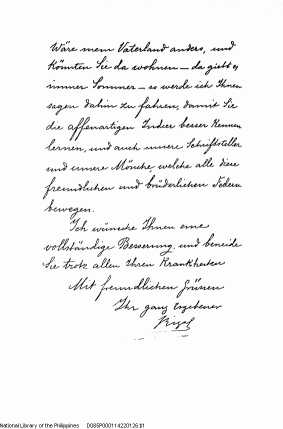 Wäre mein Vaterland anders, und
könnten Sie da wohnen – da giebt es
immer Sommer – so werde ich Ihnen
sagen dahin zu fahren, damit Sie
die affenartigen Indier besser kennen
lernen, und auch unsere Schriftsteller
und unsere Mönche, welche alle diese
freundlichen und brüderlichen Federn
bewegen.
Ich wünsche Ihnen eine
vollständige Besserung, und beneide
Sie trotz allen Ihren Krankheiten
Mit freundlichen Grüssen
Ihr ganz Ergebener
Rizal
National Library of the Philippines D085P000114220126.tif